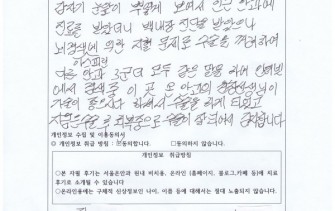 갑자기 눈앞이 뿌옇게 보여서 안과에
진료를 받았더니 백내장 진단을 받았으나
뇌경색에 의한 지혈 문제로 수술을 꺼려하여
아스피린
다른 안과 3군데 모두 같은 말을 하여 인터넷
에서 검색중 이 곳 안과의 원장선생님이
수술을 하게 되었고
지금은 수술 후 회복중으로 수술이 잘되어서 감사합니다
개인정보 수집 및 이용동의서
◎ 개인정보 취급 방침 : 동의합니다. □동의하지 않습니다.
개인정보 취급방침
○본 자필 후기는 서울온안과 원내 비치용, 온라인 (홈페이지, 블로그,카페 등)에 의료
후기로 소개될 수 있습니다
○온라인용에는 구체적 신상정보인 나이, 이름 등에 대해서는 절대 노출되지 않습니다.